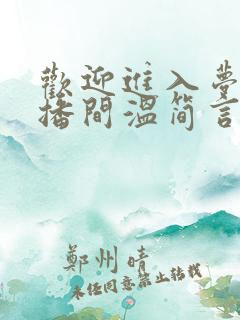 歡迎進入夢
播間溫简言
鄭州晴
未经同意禁止转载